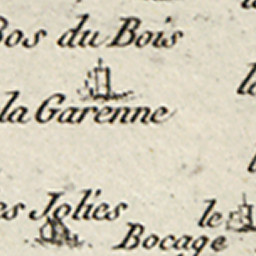 Bos du Bois
la Garenne
es Jolies
le
Bocage